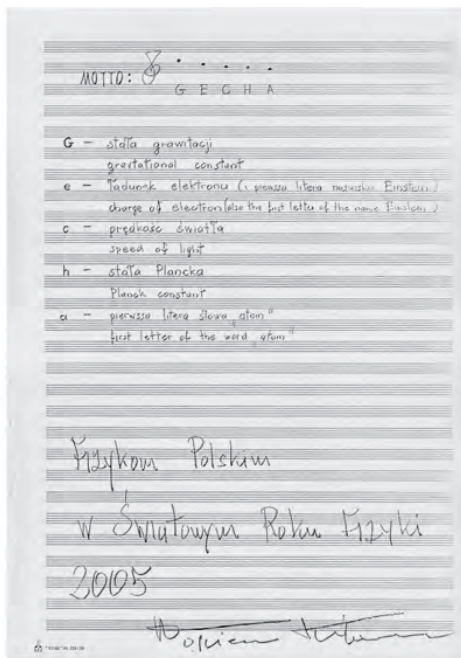 MOTTO:
G E C H A
G - stała grawitacji
gravitational constant
e - ładunek elektronu (i pierwsza litera nazwiska Einstein)
charge of electron (also the first letter of the name Einstein)
c - prędkość światła
speed of light
h - stała Plancka
Planck constant
a - pierwsza litera słowa „atom"
first letter of the word „atom"
Fizykom Polskim
w Światowym Roku Fizyki
2005